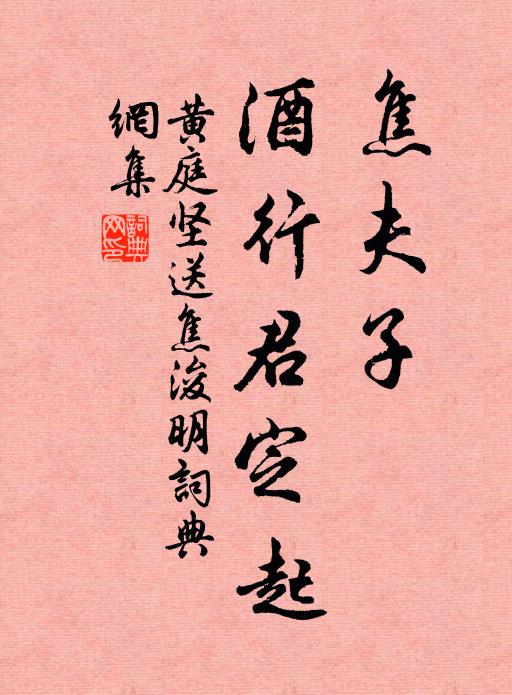 焦夫子
酒行君定起
黄庭坚送焦浚明詞典
網集
詞典
网印